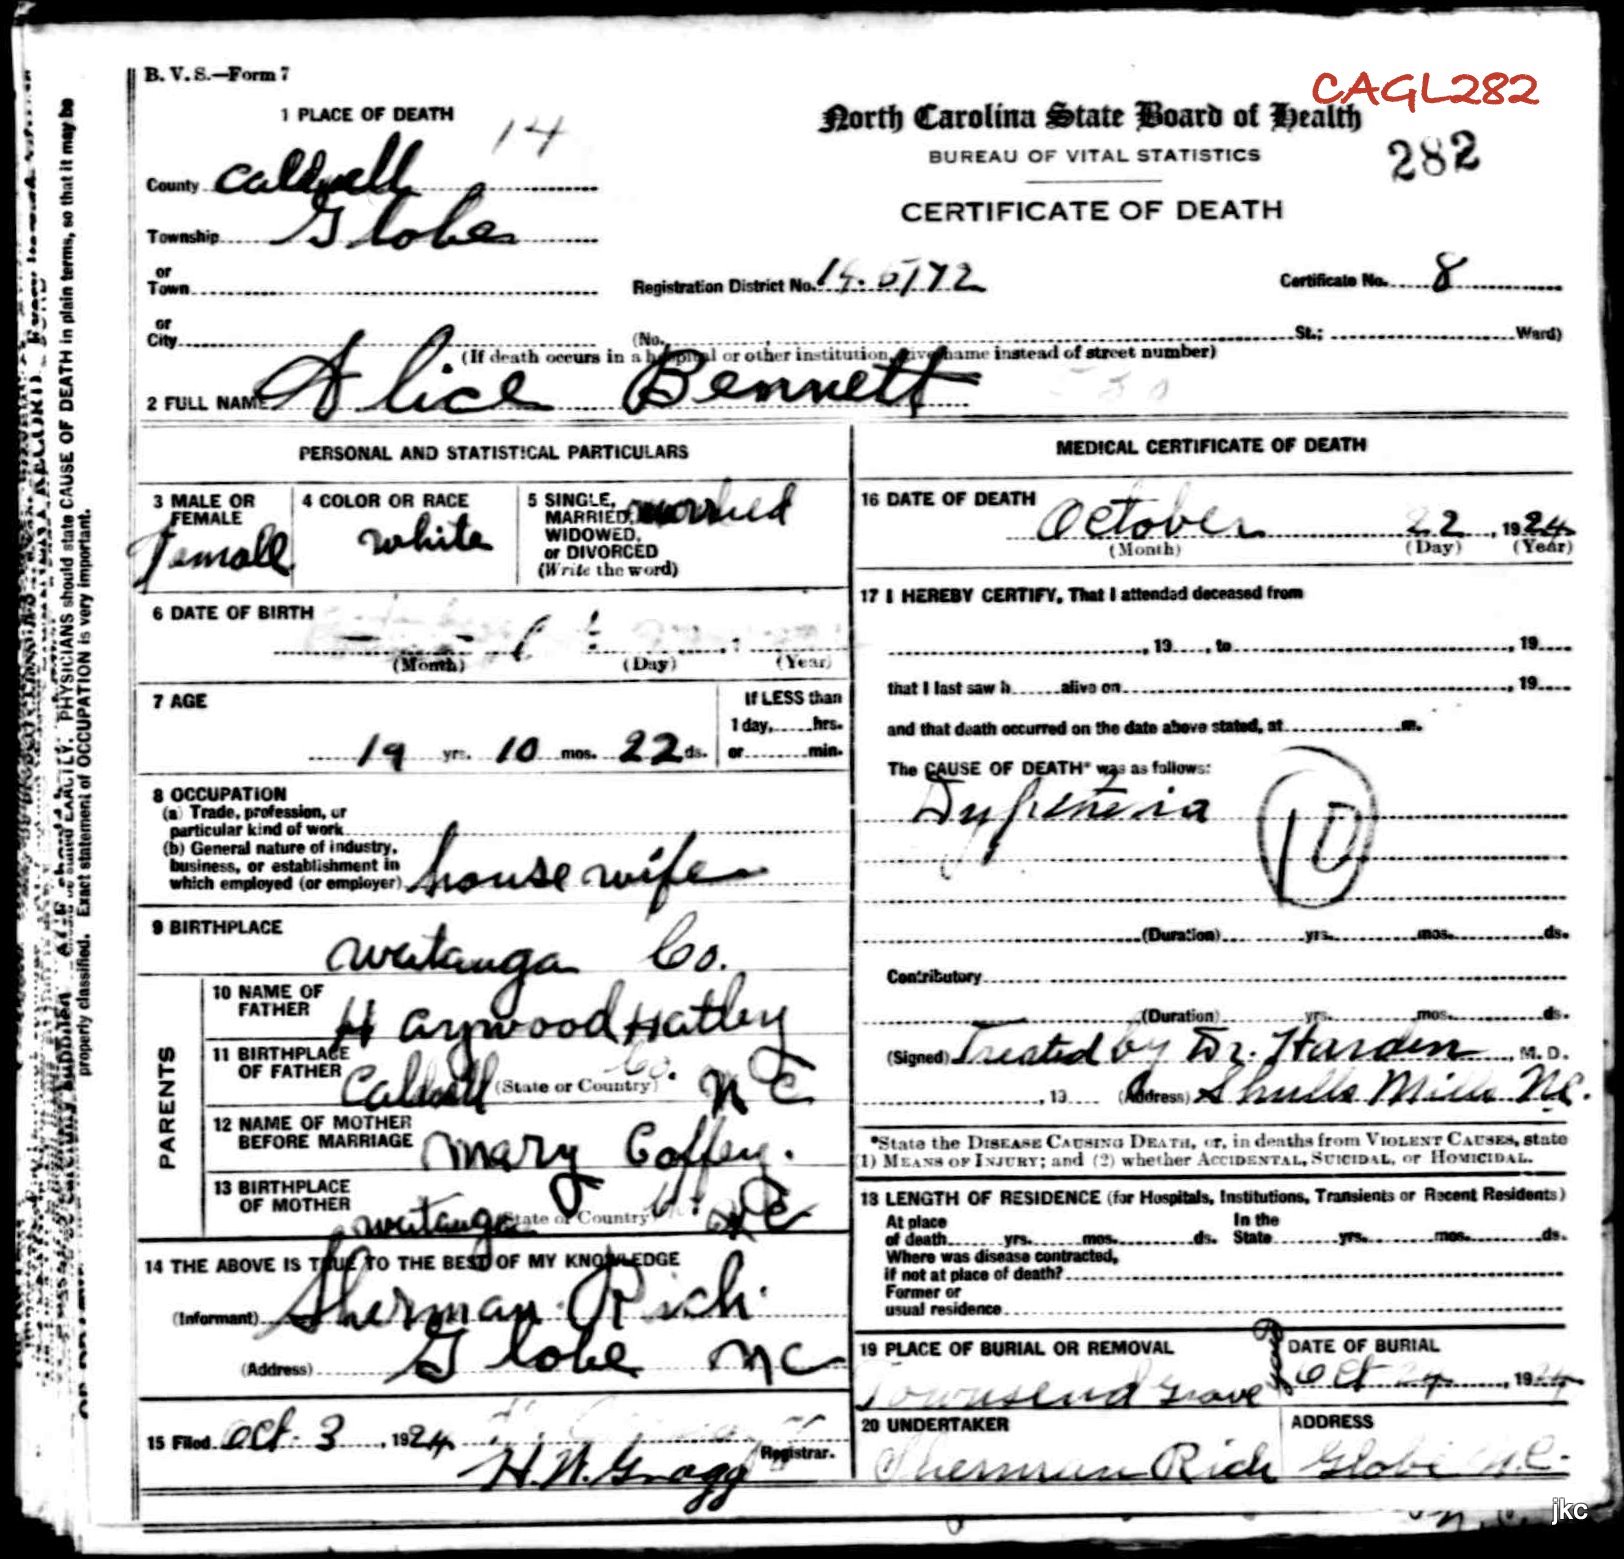 CAGL282
B. V. S.—Form 7
1 PLACE OF DEATH
14
North Carolina State Board of Health
BUREAU OF VITAL STATISTICS
282
CERTIFICATE OF DEATH
County Caldwell
Township Globe
or
Town
Registration District No. 14.5172
Certificate No. 8
or
City
(No. St.; Ward)
(If death occurs in a hospital or other institution, give name instead of street number)
2 FULL NAME Alice Bennett
PERSONAL AND STATISTICAL PARTICULARS
3 MALE OR
FEMALE
Female
4 COLOR OR RACE
white
5 SINGLE,
MARRIED,
WIDOWED,
or DIVORCED
(Write the word)
married
6 DATE OF BIRTH
(Month) (Day) (Year)
7 AGE
19 yrs. 10 mos. 22 ds.
If LESS than
1 day, hrs.
or min.
8 OCCUPATION
(a) Trade, profession, or
particular kind of work
(b) General nature of industry,
business, or establishment in
which employed (or employer) house wife
9 BIRTHPLACE
Watauga Co.
PARENTS
10 NAME OF
FATHER
Haywood Hatley
11 BIRTHPLACE
OF FATHER
(State or Country)
Caldwell Co. N C
12 NAME OF MOTHER
BEFORE MARRIAGE
Mary Coffey.
13 BIRTHPLACE
OF MOTHER
(State or Country)
Watauga N C
14 THE ABOVE IS TRUE TO THE BEST OF MY KNOWLEDGE
(Informant) Sherman Rich
(Address) Globe N C
15 Filed Oct. 3, 1924
H. W. Gragg
Registrar.
MEDICAL CERTIFICATE OF DEATH
16 DATE OF DEATH
October 22, 1924
(Month) (Day) (Year)
17 I HEREBY CERTIFY, That I attended deceased from
, 19 , to , 19
that I last saw h alive on , 19
and that death occurred on the date above stated, at m.
The CAUSE OF DEATH* was as follows:
10
(Duration) yrs. mos. ds.
Contributory
(Duration) yrs. mos. ds.
(Signed) Treated by Dr. Harden, M. D.
, 19 (Address) Shulls Mills N.C.
*State the DISEASE CAUSING DEATH, or, in deaths from VIOLENT CAUSES, state
(1) MEANS OF INJURY; and (2) whether ACCIDENTAL, SUICIDAL, or HOMICIDAL.
18 LENGTH OF RESIDENCE (for Hospitals, Institutions, Transients or Recent Residents)
At place
of death yrs. mos. ds.
In the
State yrs. mos. ds.
Where was disease contracted,
if not at place of death?
Former or
usual residence
19 PLACE OF BURIAL OR REMOVAL
Townsend Grave
DATE OF BURIAL
Oct 24, 1924
20 UNDERTAKER
Sherman Rich
ADDRESS
Globe N.C.
PHYSICIANS should state CAUSE OF DEATH in plain terms, so that it may be
properly classified. Exact statement of OCCUPATION is very important.
jkc